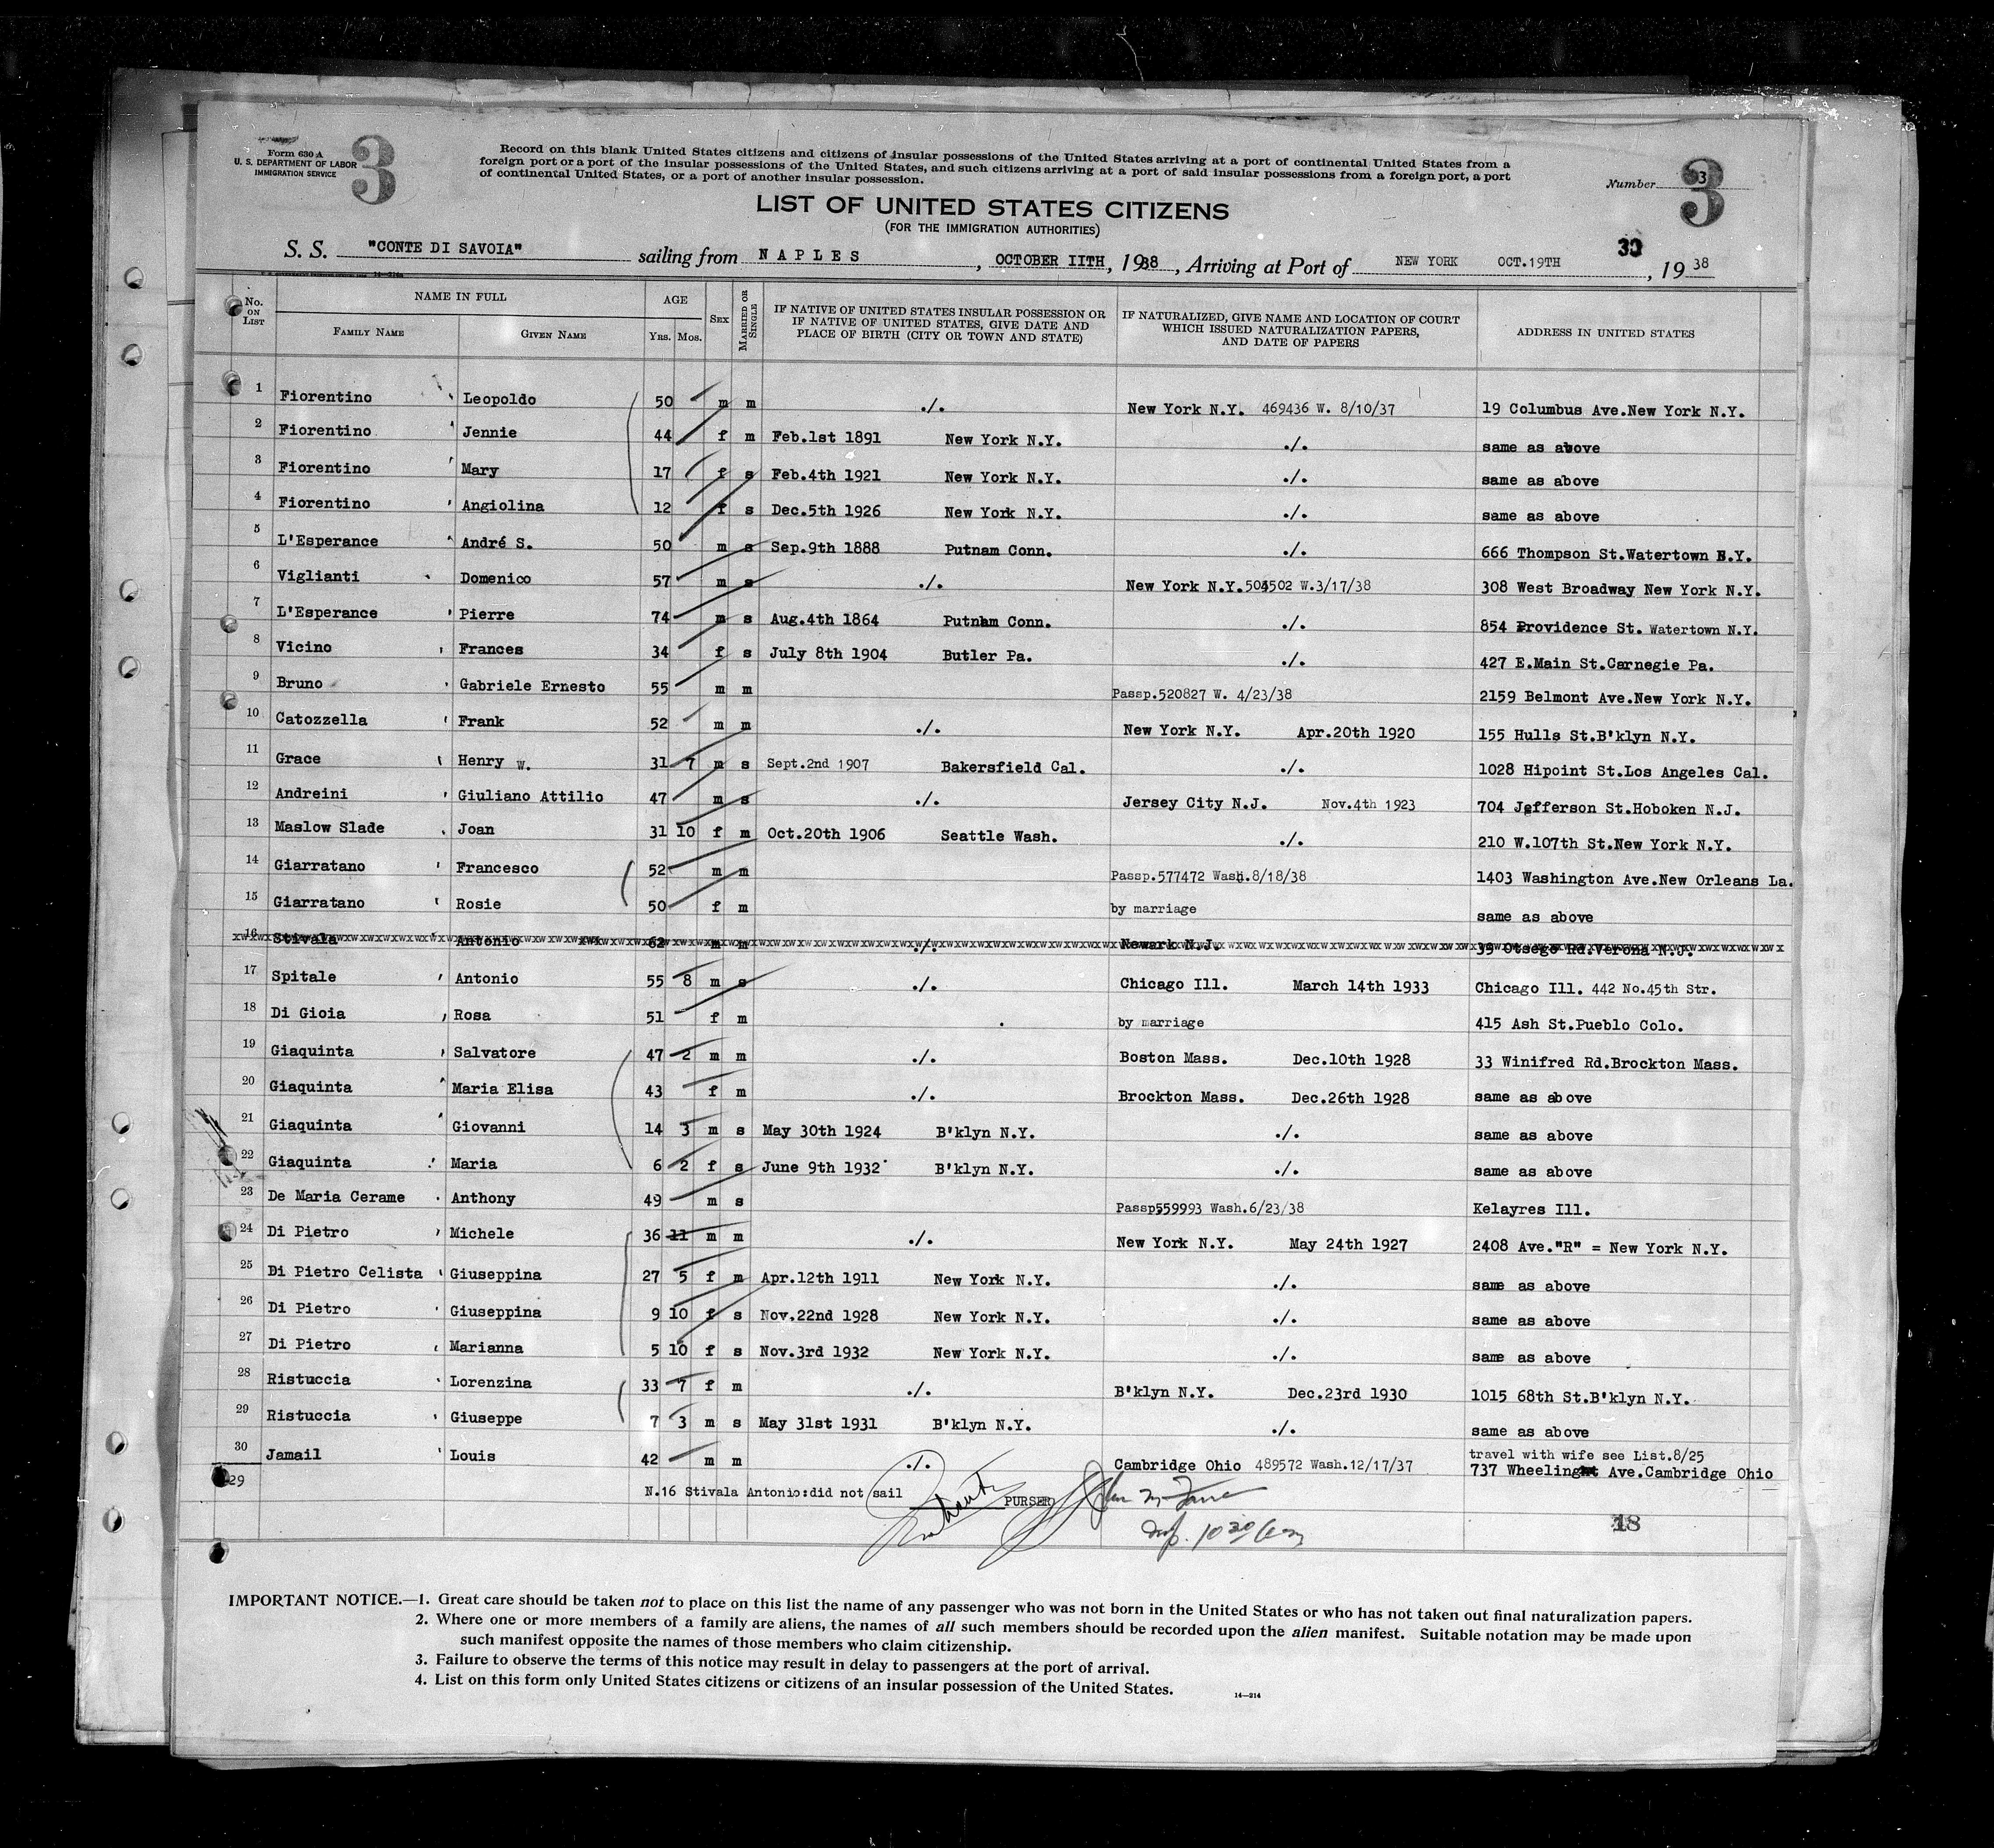 Form 630 A
U. S. DEPARTMENT OF LABOR
IMMIGRATION SERVICE
3
Record on this blank United States citizens and citizens of insular possessions of the United States arriving at a port of continental United States from a
foreign port or a port of the insular possessions of the United States, and such citizens arriving at a port of said insular possessions from a foreign port, a port
of continental United States, or a port of another insular possession.
Number 3
3
LIST OF UNITED STATES CITIZENS
(FOR THE IMMIGRATION AUTHORITIES)
S. S. "CONTE DI SAVOIA" sailing from NAPLES, OCTOBER IITH, 1938, Arriving at Port of NEW YORK OCT.19TH, 19 38
30
No. ON LIST NAME IN FULL AGE SEX MARRIED OR SINGLE IF NATIVE OF UNITED STATES INSULAR POSSESSION OR IF NATIVE OF UNITED STATES, GIVE DATE AND PLACE OF BIRTH (CITY OR TOWN AND STATE) IF NATURALIZED, GIVE NAME AND LOCATION OF COURT WHICH ISSUED NATURALIZATION PAPERS, AND DATE OF PAPERS ADDRESS IN UNITED STATES
FAMILY NAME GIVEN NAME YRS. MOS.
1 Fiorentino Leopoldo 50 m m ./. New York N.Y. 469436 W. 8/10/37 19 Columbus Ave.New York N.Y.
2 Fiorentino Jennie 44 f m Feb.1st 1891 New York N.Y. ./. same as above
3 Fiorentino Mary 17 f s Feb.4th 1921 New York N.Y. ./. same as above
4 Fiorentino Angiolina 12 f s Dec.5th 1926 New York N.Y. ./. same as above
5 L'Esperance André S. 50 m s Sep.9th 1888 Putnam Conn. ./. 666 Thompson St.Watertown N.Y.
6 Viglianti Domenico 57 m s ./. New York N.Y. W.3/17/38 308 West Broadway New York N.Y.
7 L'Esperance Pierre 74 m s Aug.4th 1864 Putnam Conn. ./. 854 Providence St. Watertown N.Y.
8 Vicino Frances 34 f s July 8th 1904 Butler Pa. ./. 427 E.Main St.Carnegie Pa.
9 Bruno Gabriele Ernesto 55 m m Passp.520827 W. 4/23/38 2159 Belmont Ave.New York N.Y.
10 Catozzella Frank 52 m m ./. New York N.Y. Apr.20th 1920 155 Hulls St.B'klyn N.Y.
11 Grace Henry W. 31 7 m s Sept.2nd 1907 Bakersfield Cal. ./. 1028 Hipoint St.Los Angeles Cal.
12 Andreini Giuliano Attilio 47 m s ./. Jersey City N.J. Nov.4th 1923 704 Jefferson St.Hoboken N.J.
13 Maslow Slade Joan 31 10 f m Oct.20th 1906 Seattle Wash. ./. 210 W.107th St.New York N.Y.
14 Giarratano Francesco 52 m m Passp.577472 Wash.8/18/38 1403 Washington Ave.New Orleans La.
15 Giarratano Rosie 50 f m by marriage same as above
16 Stivala Antonio 62 m m ./. Newark N.J. 35 Otsego Rd.Verona N.J.
17 Spitale Antonio 55 8 m s ./. Chicago Ill. March 14th 1933 Chicago Ill. 442 No.45th Str.
18 Di Gioia Rosa 51 f m . by marriage 415 Ash St.Pueblo Colo.
19 Giaquinta Salvatore 47 2 m m ./. Boston Mass. Dec.10th 1928 33 Winifred Rd.Brockton Mass.
20 Giaquinta Maria Elisa 43 f m ./. Brockton Mass. Dec.26th 1928 same as above
21 Giaquinta Giovanni 14 3 m s May 30th 1924 B'klyn N.Y. ./. same as above
22 Giaquinta Maria 6 2 f s June 9th 1932 B'klyn N.Y. ./. same as above
23 De Maria Cerame Anthony 49 m s Passp559993 Wash.6/23/38 Kelayres Ill.
24 Di Pietro Michele 36 11 m m ./. New York N.Y. May 24th 1927 2408 Ave."R" = New York N.Y.
25 Di Pietro Celista Giuseppina 27 5 f m Apr.12th 1911 New York N.Y. ./. same as above
26 Di Pietro Giuseppina 9 10 f s Nov.22nd 1928 New York N.Y. ./. same as above
27 Di Pietro Marianna 5 10 f s Nov.3rd 1932 New York N.Y. ./. same as above
28 Ristuccia Lorenzina 33 7 f m ./. B'klyn N.Y. Dec.23rd 1930 1015 68th St.B'klyn N.Y.
29 Ristuccia Giuseppe 7 3 m s May 31st 1931 B'klyn N.Y. ./. same as above
30 Jamail Louis 42 m m ./. Cambridge Ohio 489572 Wash.12/17/37 travel with wife see List.8/25
737 Wheeling Ave.Cambridge Ohio
29
N.16 Stivala Antonio:did not sail PURSER
18
IMPORTANT NOTICE.—1. Great care should be taken not to place on this list the name of any passenger who was not born in the United States or who has not taken out final naturalization papers.
2. Where one or more members of a family are aliens, the names of all such members should be recorded upon the alien manifest. Suitable notation may be made upon
such manifest opposite the names of those members who claim citizenship.
3. Failure to observe the terms of this notice may result in delay to passengers at the port of arrival.
4. List on this form only United States citizens or citizens of an insular possession of the United States.
14—214